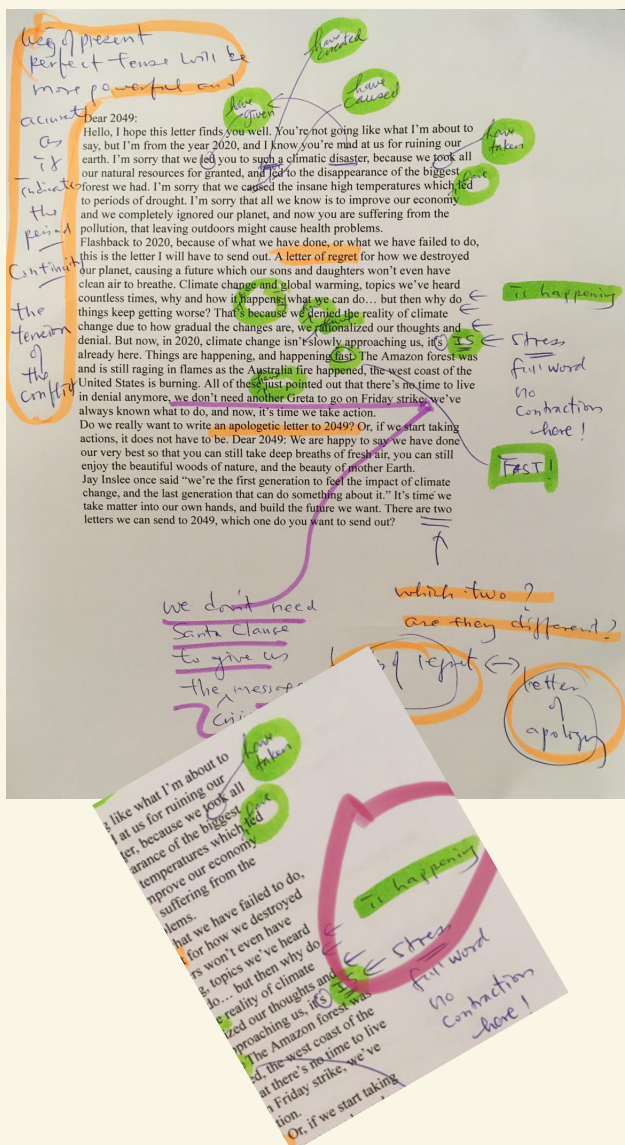 use of present
perfect tense will be
more powerful and
accurate
as
if
indicates
the
period
Continuity
the
tension
of
the
conflict
have
created
have
caused
have
given
have
taken
have
Dear 2049:
Hello, I hope this letter finds you well. You're not going like what I'm about to
say, but I'm from the year 2020, and I know you're mad at us for ruining our
earth. I'm sorry that we led you to such a climatic disaster, because we took all
our natural resources for granted, and led to the disappearance of the biggest
forest we had. I'm sorry that we caused the insane high temperatures which led
to periods of drought. I'm sorry that all we know is to improve our economy
and we completely ignored our planet, and now you are suffering from the
pollution, that leaving outdoors might cause health problems.
Flashback to 2020, because of what we have done, or what we have failed to do,
this is the letter I will have to send out. A letter of regret for how we destroyed
our planet, causing a future which our sons and daughters won't even have
clean air to breathe. Climate change and global warming, topics we've heard
countless times, why and how it happens, what we can do… but then why do
things keep getting worse? That's because we denied the reality of climate
change due to how gradual the changes are, we rationalized our thoughts and
denial. But now, in 2020, climate change isn't slowly approaching us, it's
already here. Things are happening, and happening fast. The Amazon forest was
and is still raging in flames as the Australia fire happened, the west coast of the
United States is burning. All of these just pointed out that there's no time to live
in denial anymore, we don't need another Greta to go on Friday strike, we've
always known what to do, and now, it's time we take action.
Do we really want to write an apologetic letter to 2049? Or, if we start taking
actions, it does not have to be. Dear 2049: We are happy to say we have done
our very best so that you can still take deep breaths of fresh air, you can still
enjoy the beautiful woods of nature, and the beauty of mother Earth.
Jay Inslee once said "we're the first generation to feel the impact of climate
change, and the last generation that can do something about it." It's time we
take matter into our own hands, and build the future we want. There are two
letters we can send to 2049, which one do you want to send out?
is happening
IS
stress
full word
no
contraction
here!
FAST!
we don't need
Santa Clause
to give us
the message
which two?
are they different?
of regret
letter
of
apology
have
taken
have
like what I'm about to
at us for ruining our
ter, because we took all
arance of the biggest
temperatures which led
mprove our economy
suffering from the
lems.
hat we have failed to do,
for how we destroyed
rs won't even have
g, topics we've heard
do… but then why do
e reality of climate
zed our thoughts and
pproaching us, it's
The Amazon forest was
d, the west coast of the
at there's no time to live
n Friday strike, we've
tion.
Or, if we start taking
is happening
IS
stress
full word
no
contraction
here!